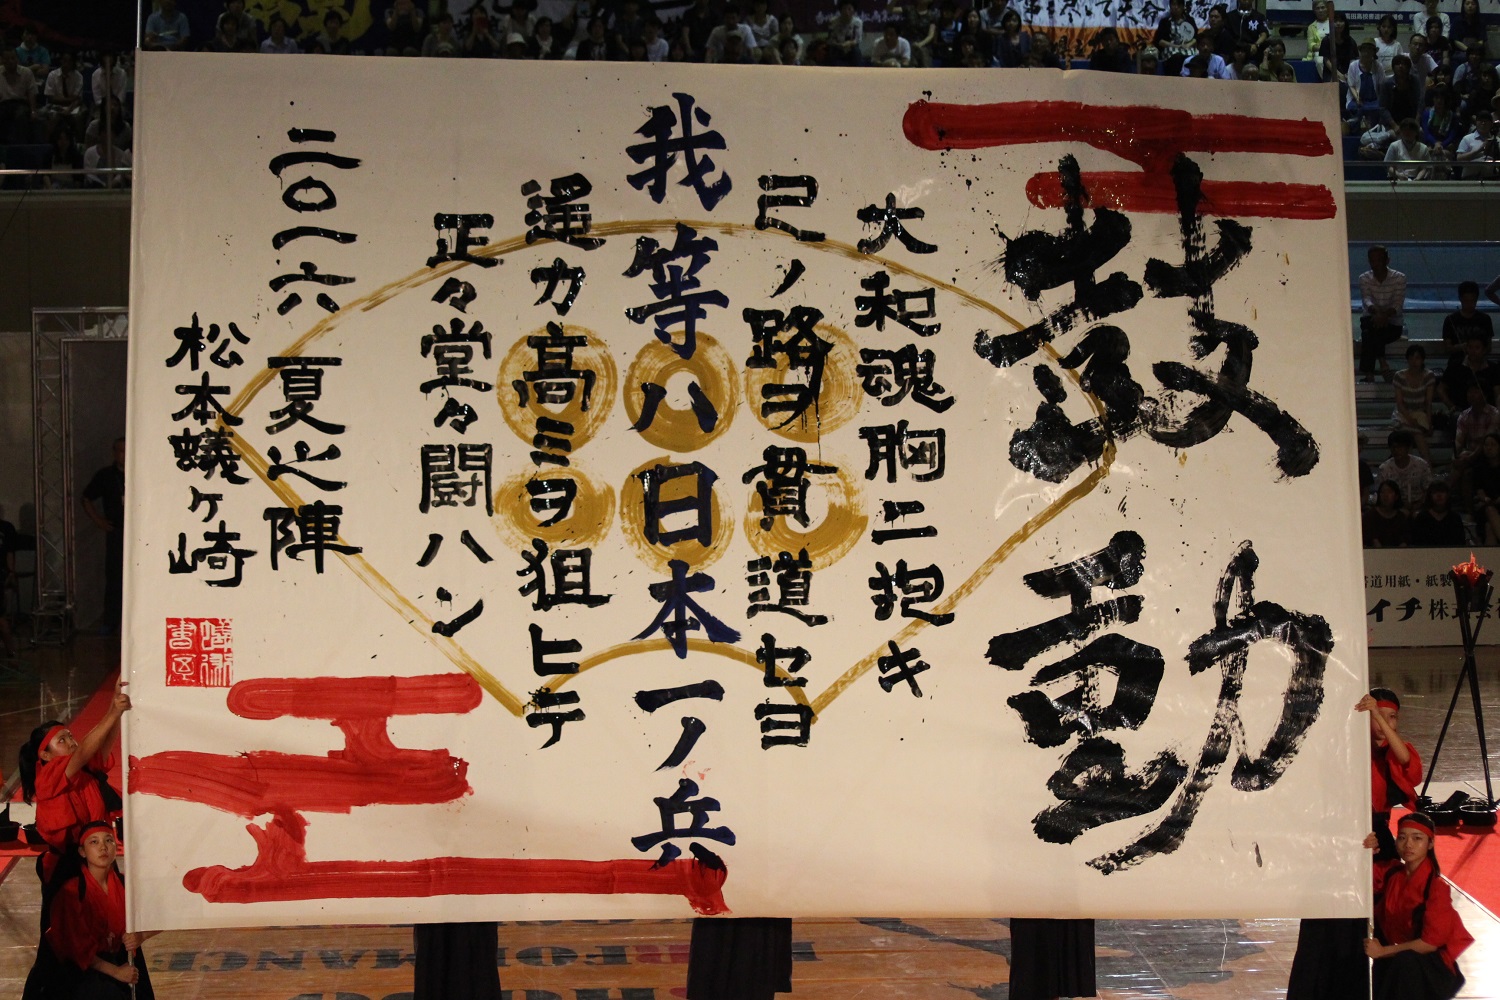 鼓動
大和魂胸ニ抱キ
己ノ路ヲ貫道セヨ
我等ハ日本一ノ兵
遥カ高ミヲ狙ヒテ
正々堂々闘ハン
二〇一六 夏之陣
松本蟻ヶ崎
道用紙・紙製
イチ株式会